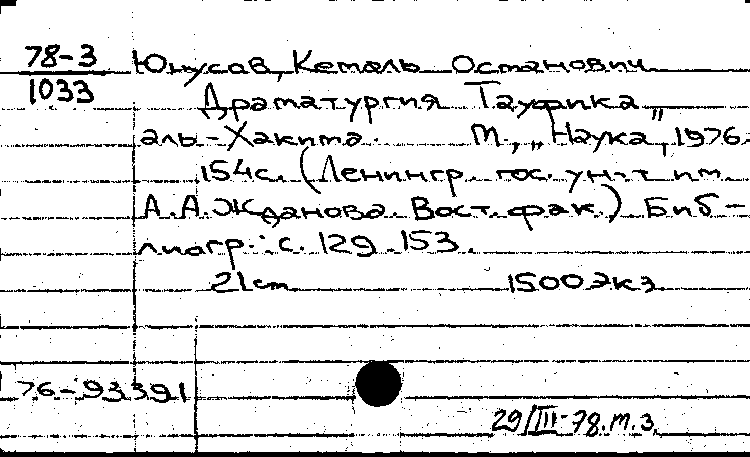 78-3 Юнусов, Кемаль Османович
1033 Драматургия Тауфика
аль-Хакима. М., „Наука", 1976.
154с. (Ленингр. гос. ун-т им.
А.А.Жданова. Вост. фак.) Биб-
лиогр.: с. 129-153.
21см 1500экз.
76-93391
29/III-78.м.з.